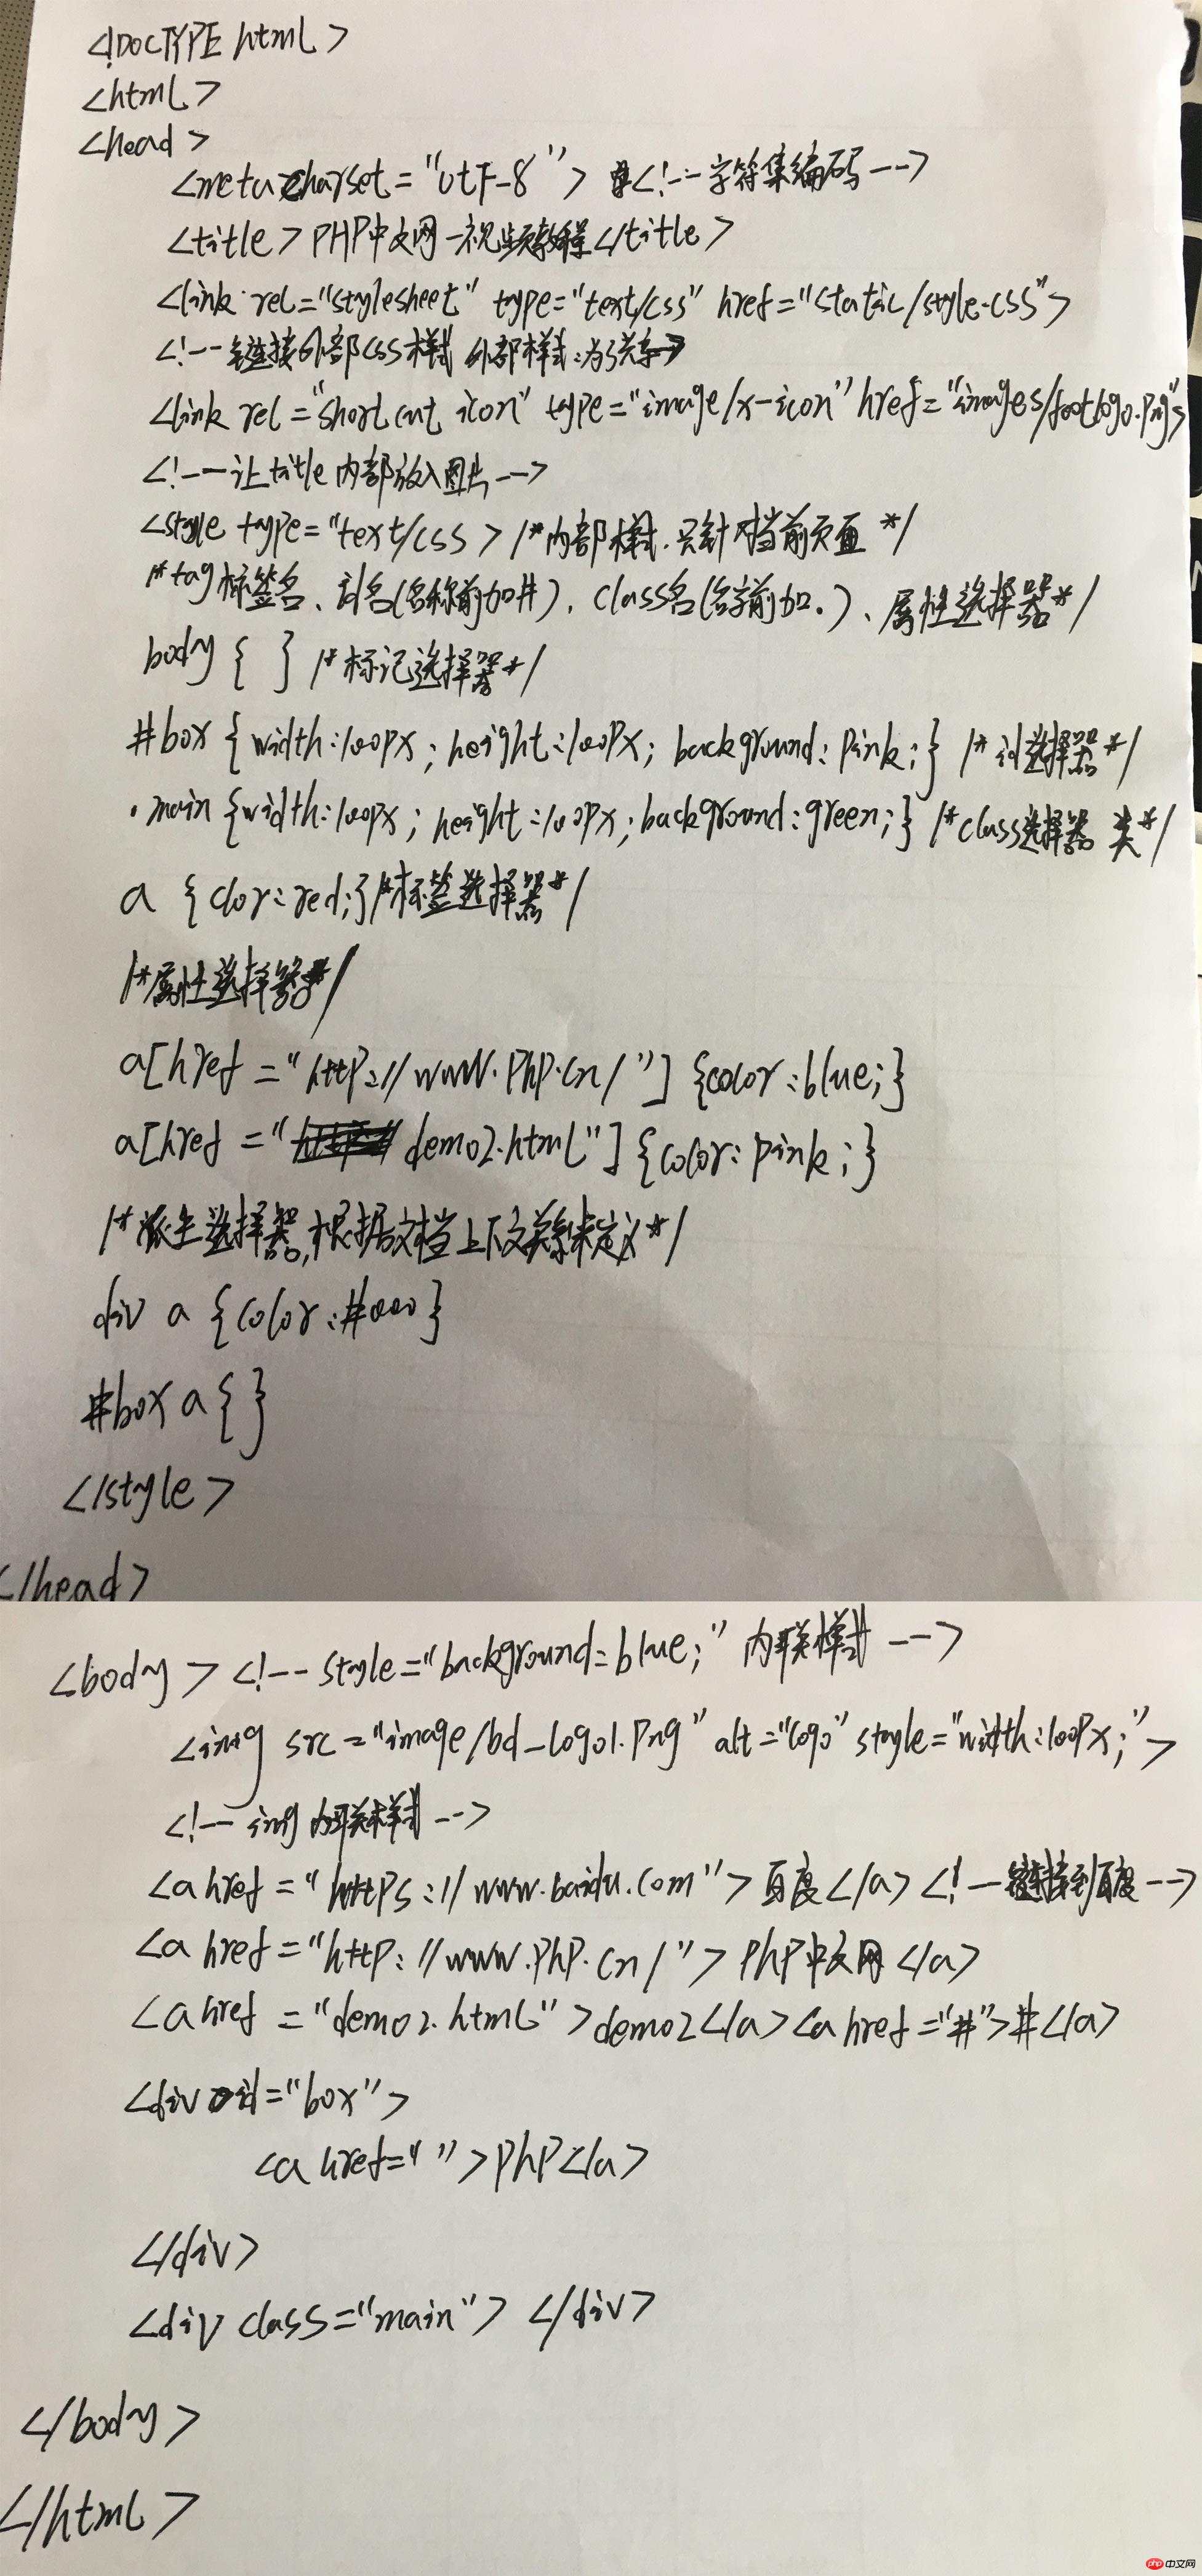 <!DOCTYPE html>
<html>
<head>
<meta charset="utf-8"> <!-- 字符集编码 -->
<title>PHP中文网-视频教程</title>
<link rel="stylesheet" type="text/css" href="static/style.css">
<!-- 链接外部css样式 外部样式:
<link rel="short cut icon" type="image/x-icon" href="images/footlogo.png">
<!-- 让title内部放入图片 -->
<style type="text/css> /*内部样式.只针对当前页面 */
/*tag标签名、id名(名称前加#)、class名(名字前加.)、属性选择器*/
body { } /*标记选择器*/
#box {width:100px; height:100px; background:pink;} /*id选择器*/
.main {width:100px; height:100px; background:green;} /*class选择器 类*/
a {clor:red;}/*标签选择器*/
/*属性选择器*/
a[href="http://www.php.cn/"] {color:blue;}
a[href="demo2.html"] {color:pink;}
/*派生选择器,根据文档上下文关系来定义*/
div a {color:#000}
#box a{ }
</style>
</head>
<body> <!-- style="background:blue;" 内联样式 -->
<img src="image/bd_logo1.png" alt="logo" style="width:100px;">
<!-- img 内联样式 -->
<a href="https://www.baidu.com">百度</a> <!-- 链接到百度 -->
<a href="http://www.php.cn/">php中文网</a>
<a href="demo2.html">demo2</a><a href="#">#</a>
<div id="box">
<a href=" ">php</a>
</div>
<div class="main"> </div>
</body>
</html>
php 中文网